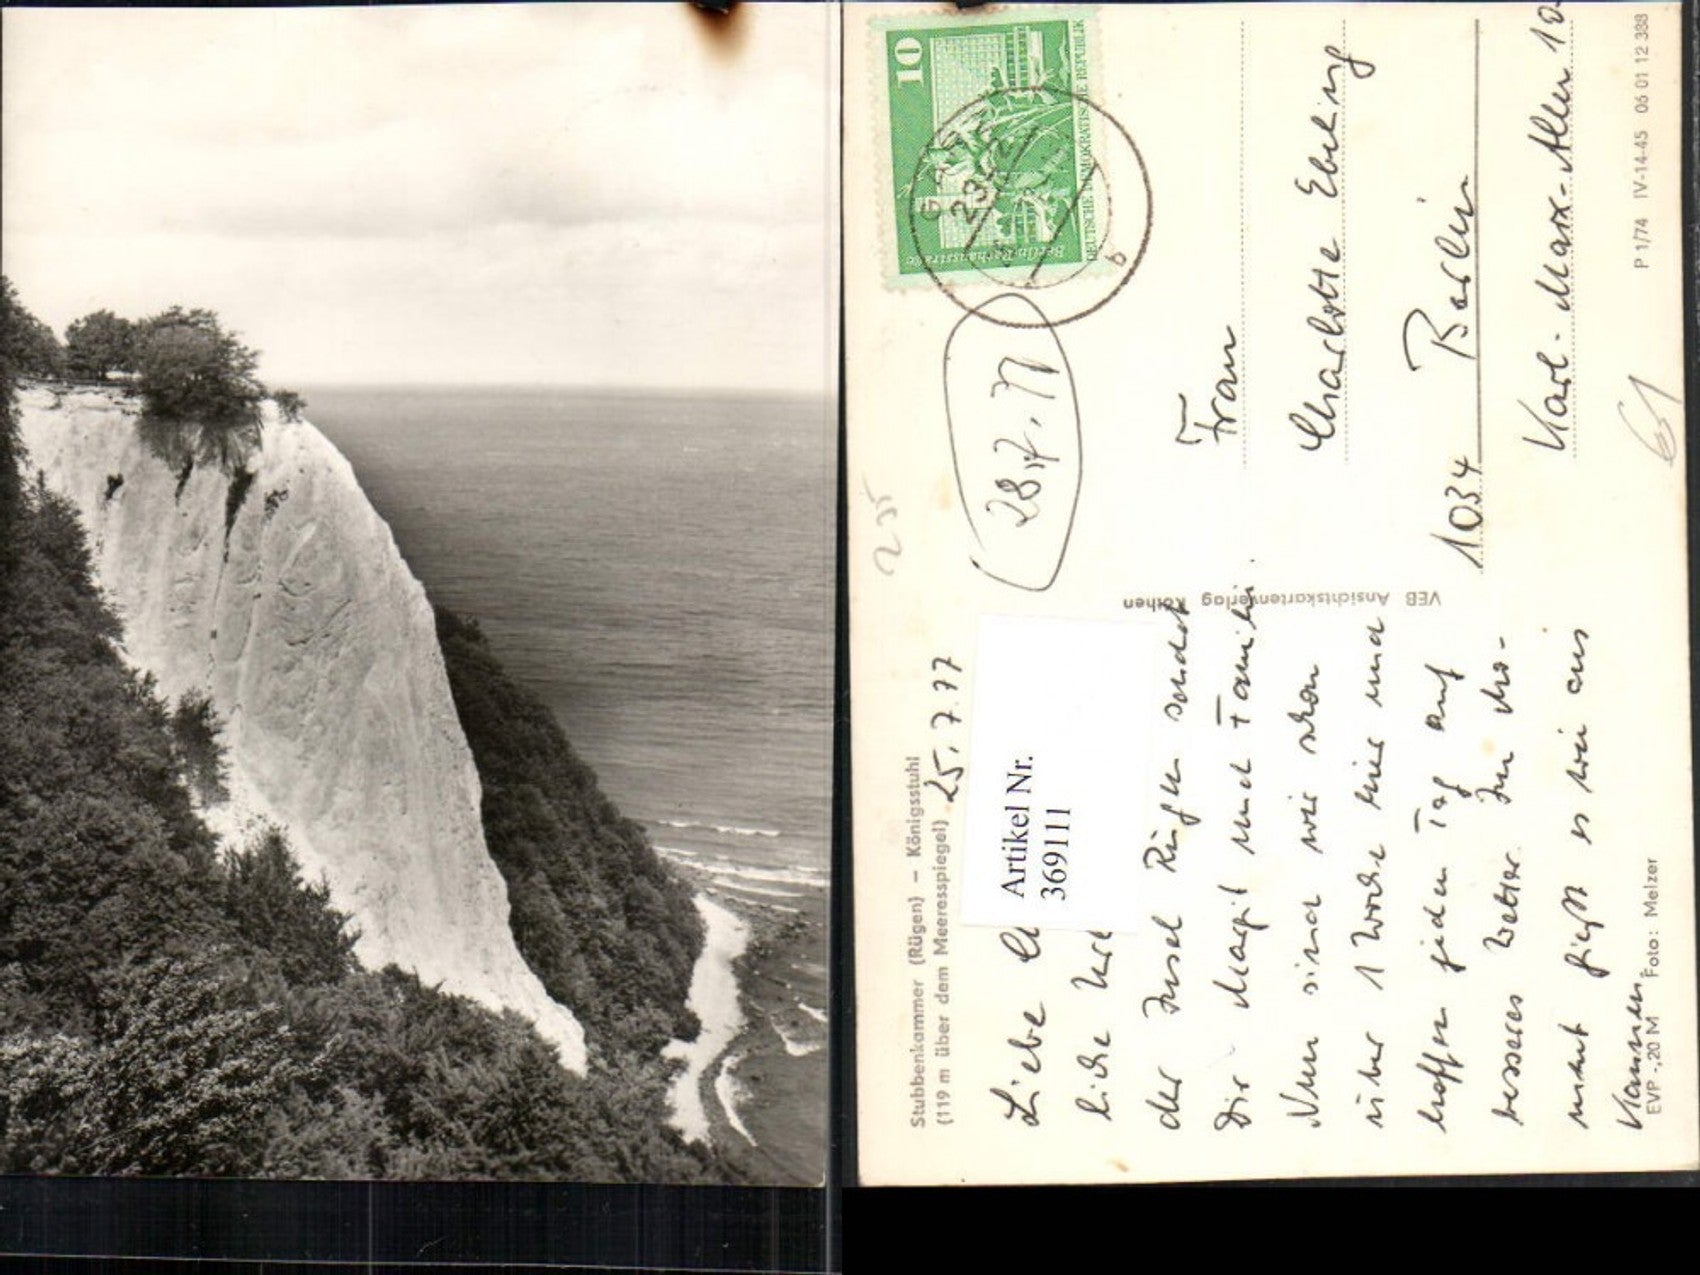 Stubbenkammer (Rügen) – Königsstuhl
(119 m über dem Meeresspiegel)
25.7.77
Artikel Nr.
369111
Liebe
liche
der Insel Rügen sendet
Dir Magit und Familie.
Nun sind wir schon
über 1 Woche hier und
hoffen jeden Tag auf
besseres Wetter. Im Mo-
ment gießt es wie aus
Kannen.
EVP -,20 M Foto: Melzer
VEB Ansichtskartenverlag Köthen
10
DEUTSCHE DEMOKRATISCHE REPUBLIK
Berlin · Rathausstraße
b
28.7.77
Frau
Charlotte Ebeling
1034 Berlin
Karl-Marx-Allee
P 1/74 IV-14-45 06 01 12 388
61